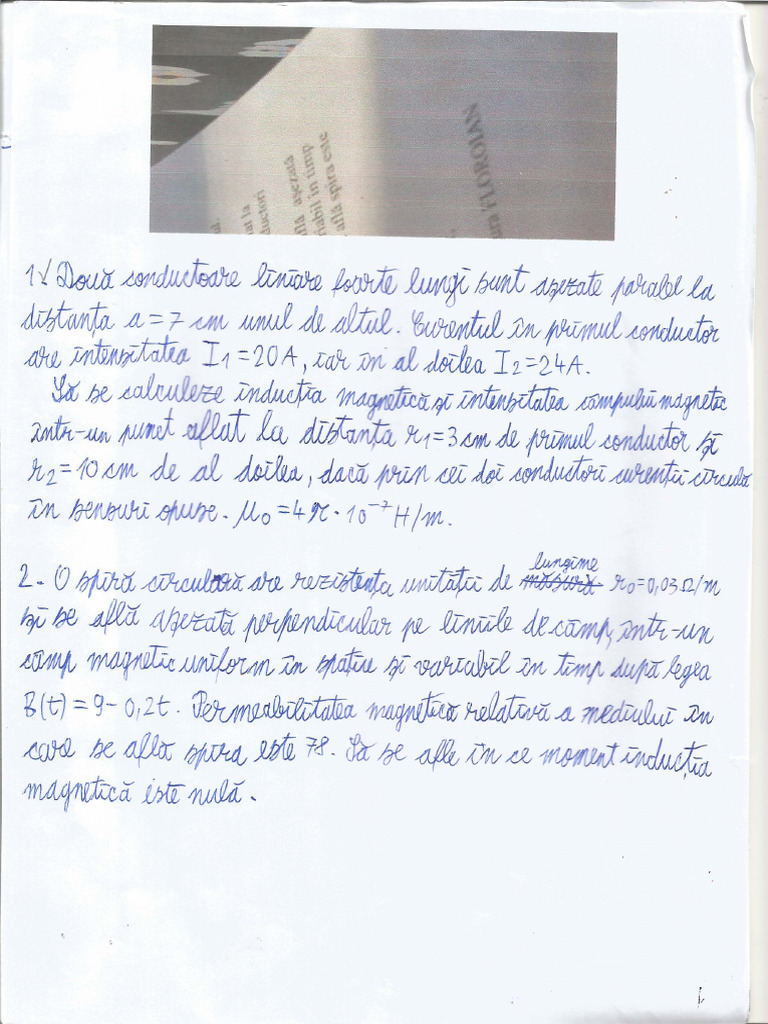 ul.
ul la
ductori
dia așezată
riabil în timp
află spira este
ura FLOROIAN
1. Două conductoare liniare foarte lungi sunt așezate paralel la
distanța a = 7 cm unul de altul. Curentul în primul conductor
are intensitatea I1 = 20A, iar în al doilea I2 = 24A.
Să se calculeze inducția magnetică și intensitatea câmpului magnetic
într-un punct aflat la distanța r1 = 3 cm de primul conductor și
r2 = 10 cm de al doilea, dacă prin cei doi conductori curenții circulă
în sensuri opuse. μ0 = 4π · 10⁻⁷ H/m.
2. O spiră circulară are rezistența unității de lungime r0 = 0,03 Ω/m
și se află așezată perpendicular pe liniile de câmp, într-un
câmp magnetic uniform în spațiu și variabil în timp după legea
B(t) = 9 - 0,2t. Permeabilitatea magnetică relativă a mediului în
care se află spira este 78. Să se afle în ce moment inducția
magnetică este nulă.